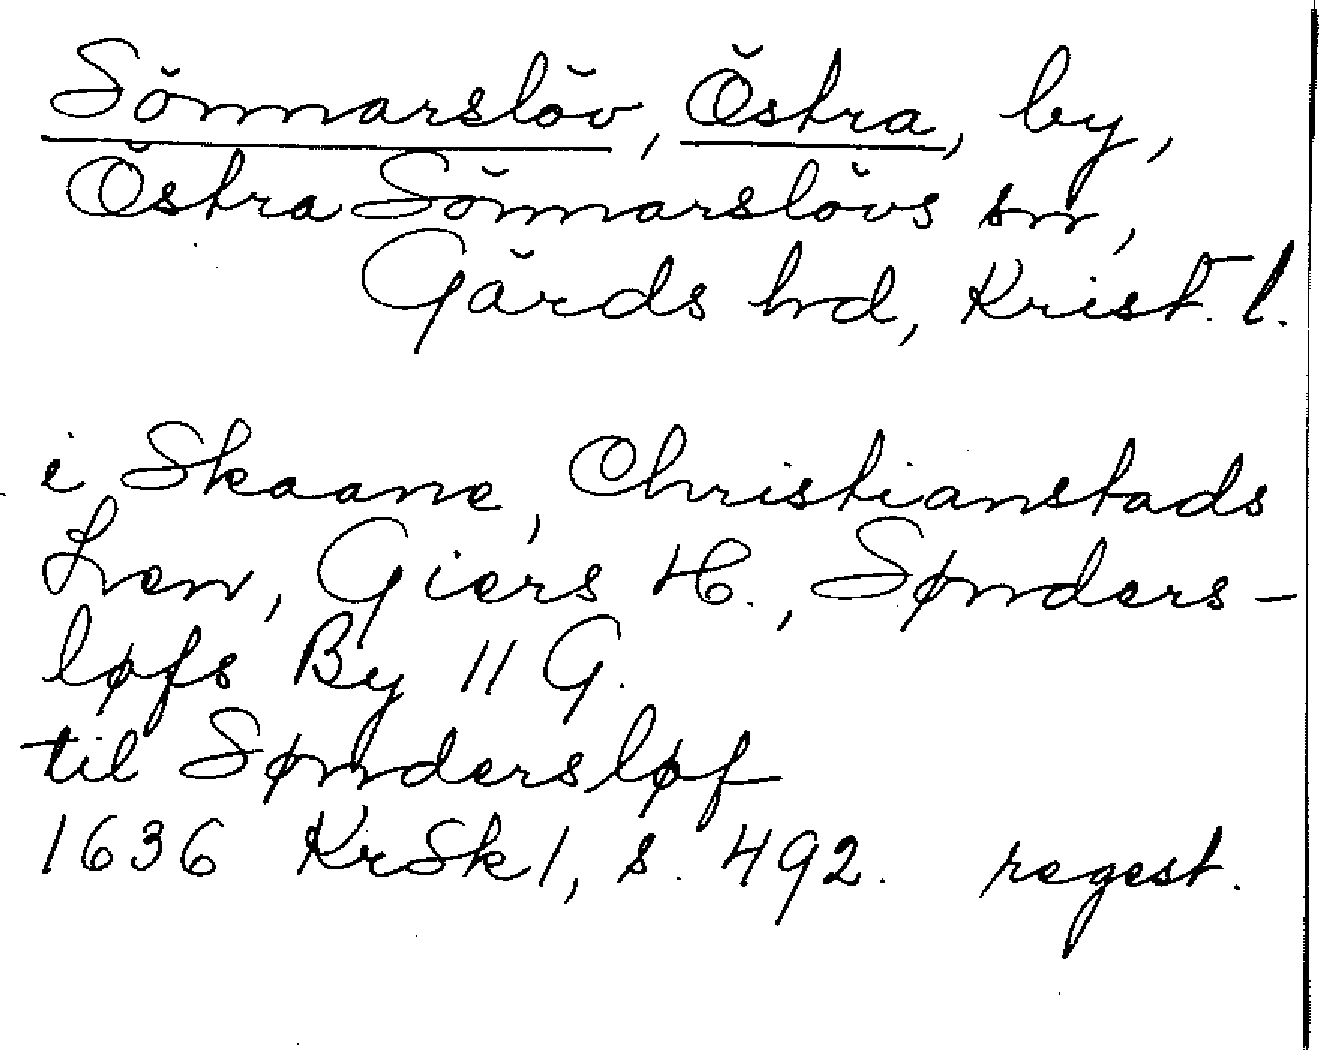 Sönnarslöv, Östra, by,
Östra Sönnarslövs sn,
Gärds hd, Krist. l.
i Skaane, Christianstads
Lven, Giers H., Sønders-
løfs By 11 G.
til Søndersløf
1636 KrSk 1, s. 492. regest.